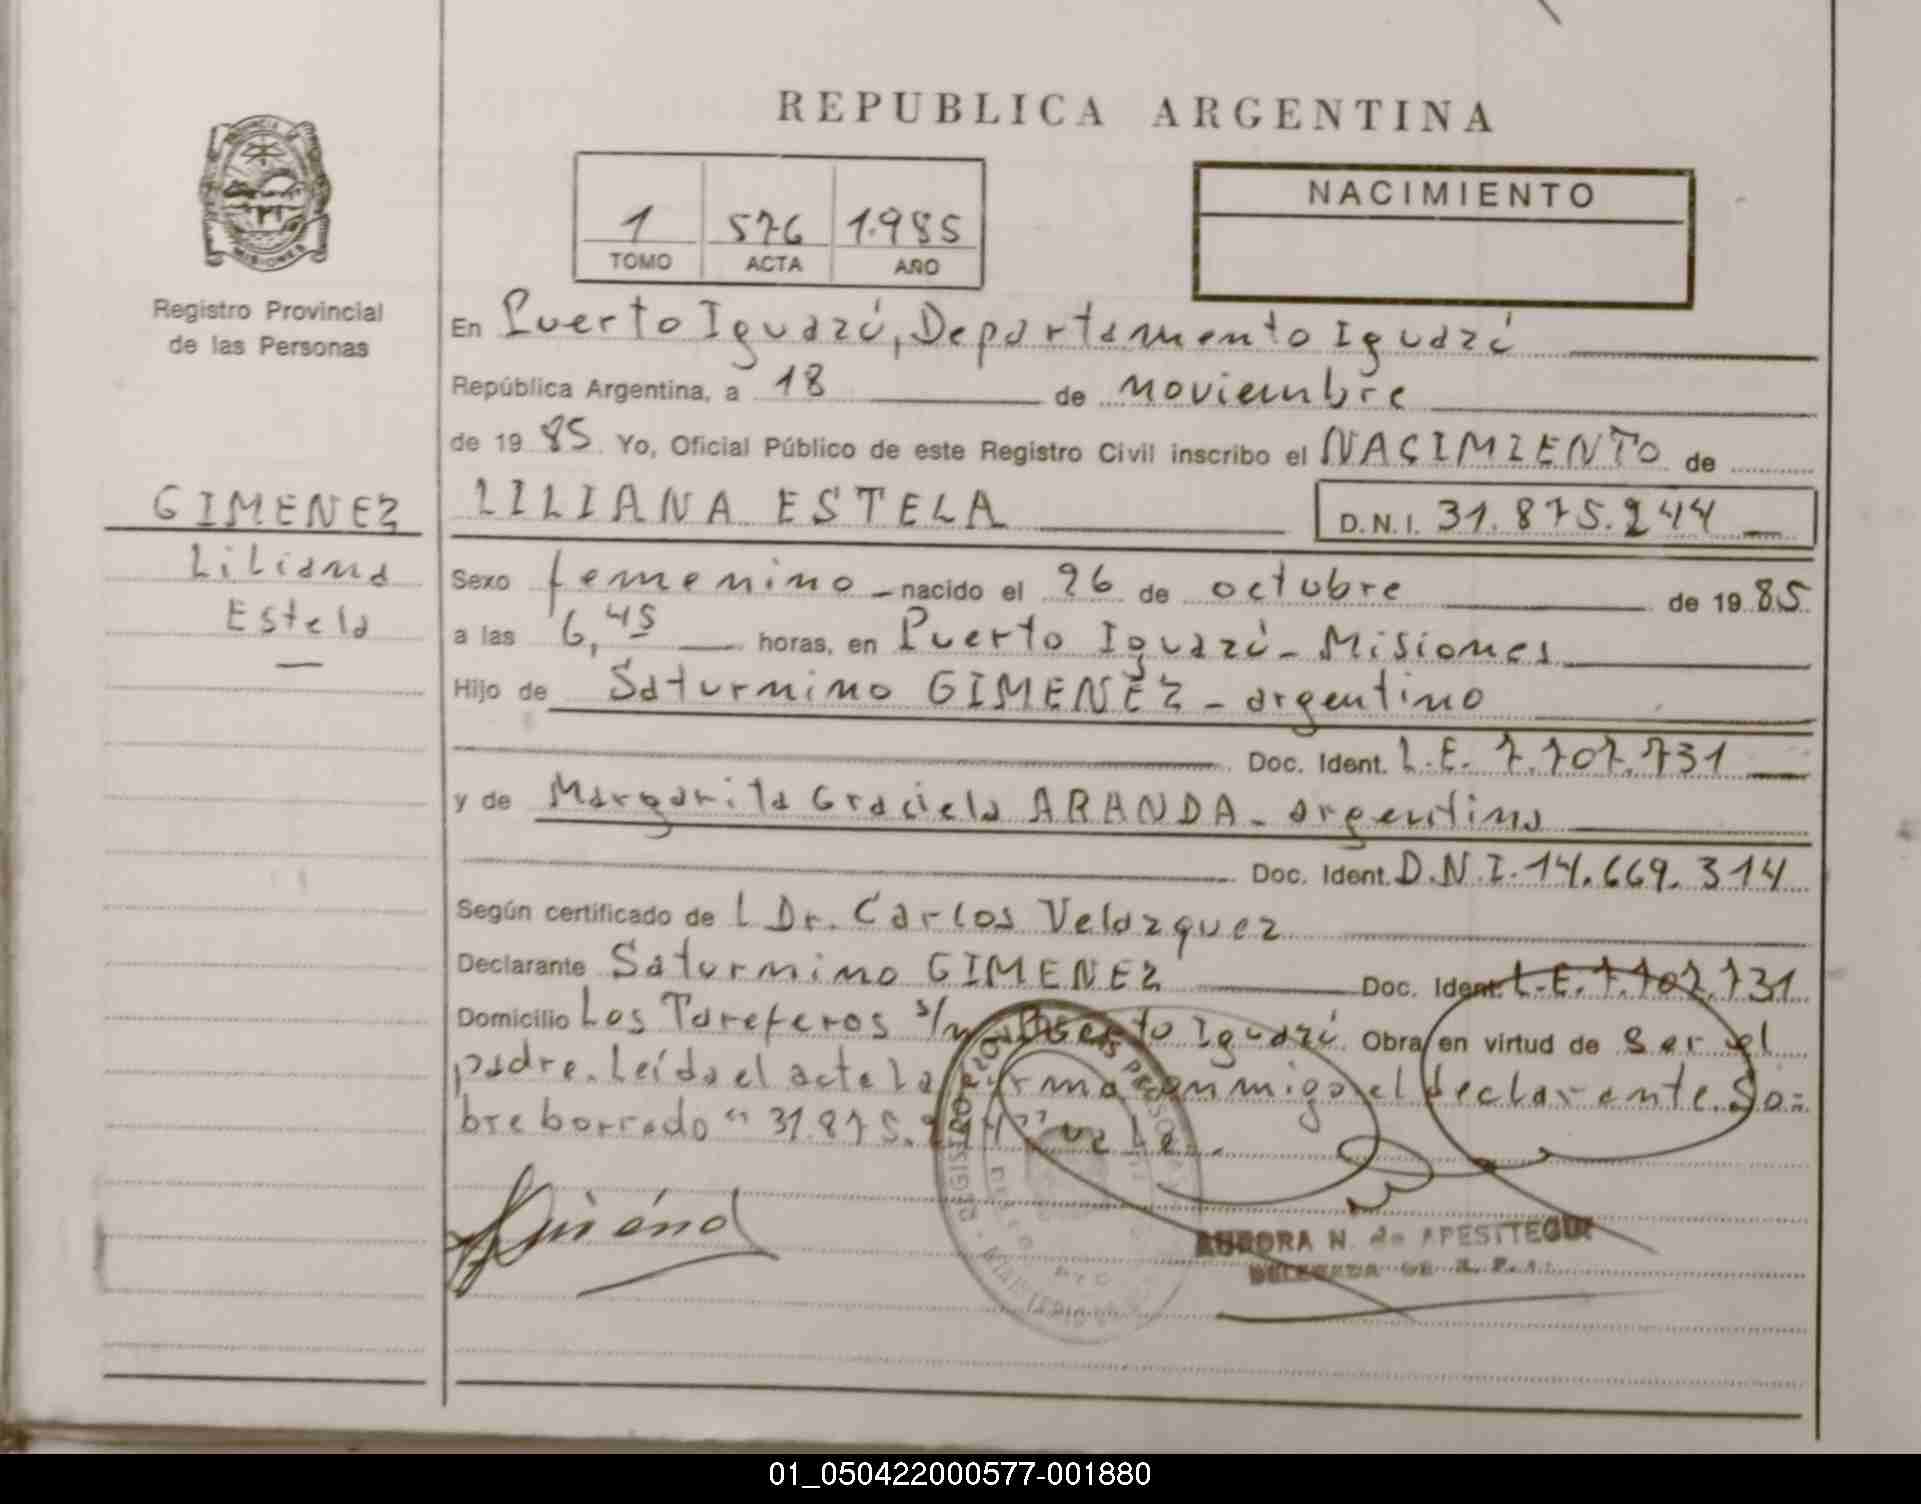 REPUBLICA ARGENTINA
NACIMIENTO
1 576 1.985
TOMO ACTA AÑO
MISIONES
Registro Provincial
de las Personas
En Puerto Iguazú, Departamento Iguazú
República Argentina, a 18 de noviembre
de 19 85 Yo, Oficial Público de este Registro Civil inscribo el NACIMIENTO de
GIMENEZ
Liliana
Estela
LILIANA ESTELA D.N.I. 31.875.244
Sexo femenino - nacido el 26 de octubre de 19 85
a las 6,45 horas, en Puerto Iguazú - Misiones
Hijo de Saturnino GIMENEZ - argentino
Doc. Ident. L.E. 7.707.731
y de Margarita Graciela ARANDA - argentina
Doc. Ident. D.N.I. 14.669.314
Según certificado de L Dr. Carlos Velazquez
Declarante Saturnino GIMENEZ Doc. Ident. L.E. 7.707.731
Domicilio Los Tareferos s/n Puerto Iguazú Obra en virtud de ser el
padre. Leída el acta la firma conmigo el declarante. So=
bre borrado "31.875. vale.
AURORA N. de APESTTEGUI
DELEGADA DE R. P.
01_050422000577-001880